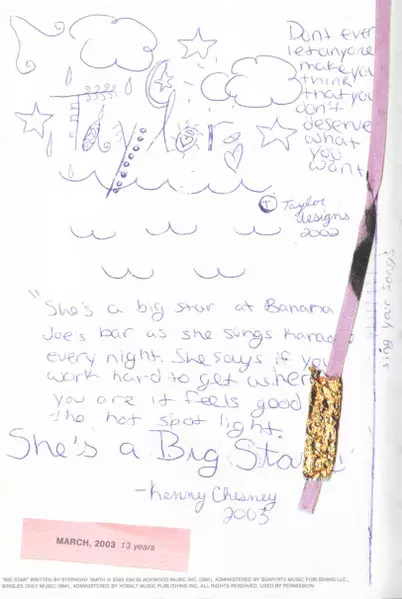 Dont ever
let anyone
make you
think
that you
don't
deserve
what
you
want
Taylor
T Taylor
designs
2002
"She's a big star at Banana
Joe's bar as she sings
every night. She says if you
work hard to get where
you are it feels good
the hot spot light.
She's a Big Star!"
-Kenny Chesney
2003
sing your songs
MARCH, 2003 13 years
"BIG STAR" WRITTEN BY STEPHONY SMITH © 2002 EMI BLACKWOOD MUSIC INC. (BMI), ADMINISTERED BY SONY/ATV MUSIC PUBLISHING LLC,
SINGLES ONLY MUSIC (BMI), ADMINISTERED BY KOBALT MUSIC PUBLISHING INC. ALL RIGHTS RESERVED. USED BY PERMISSION